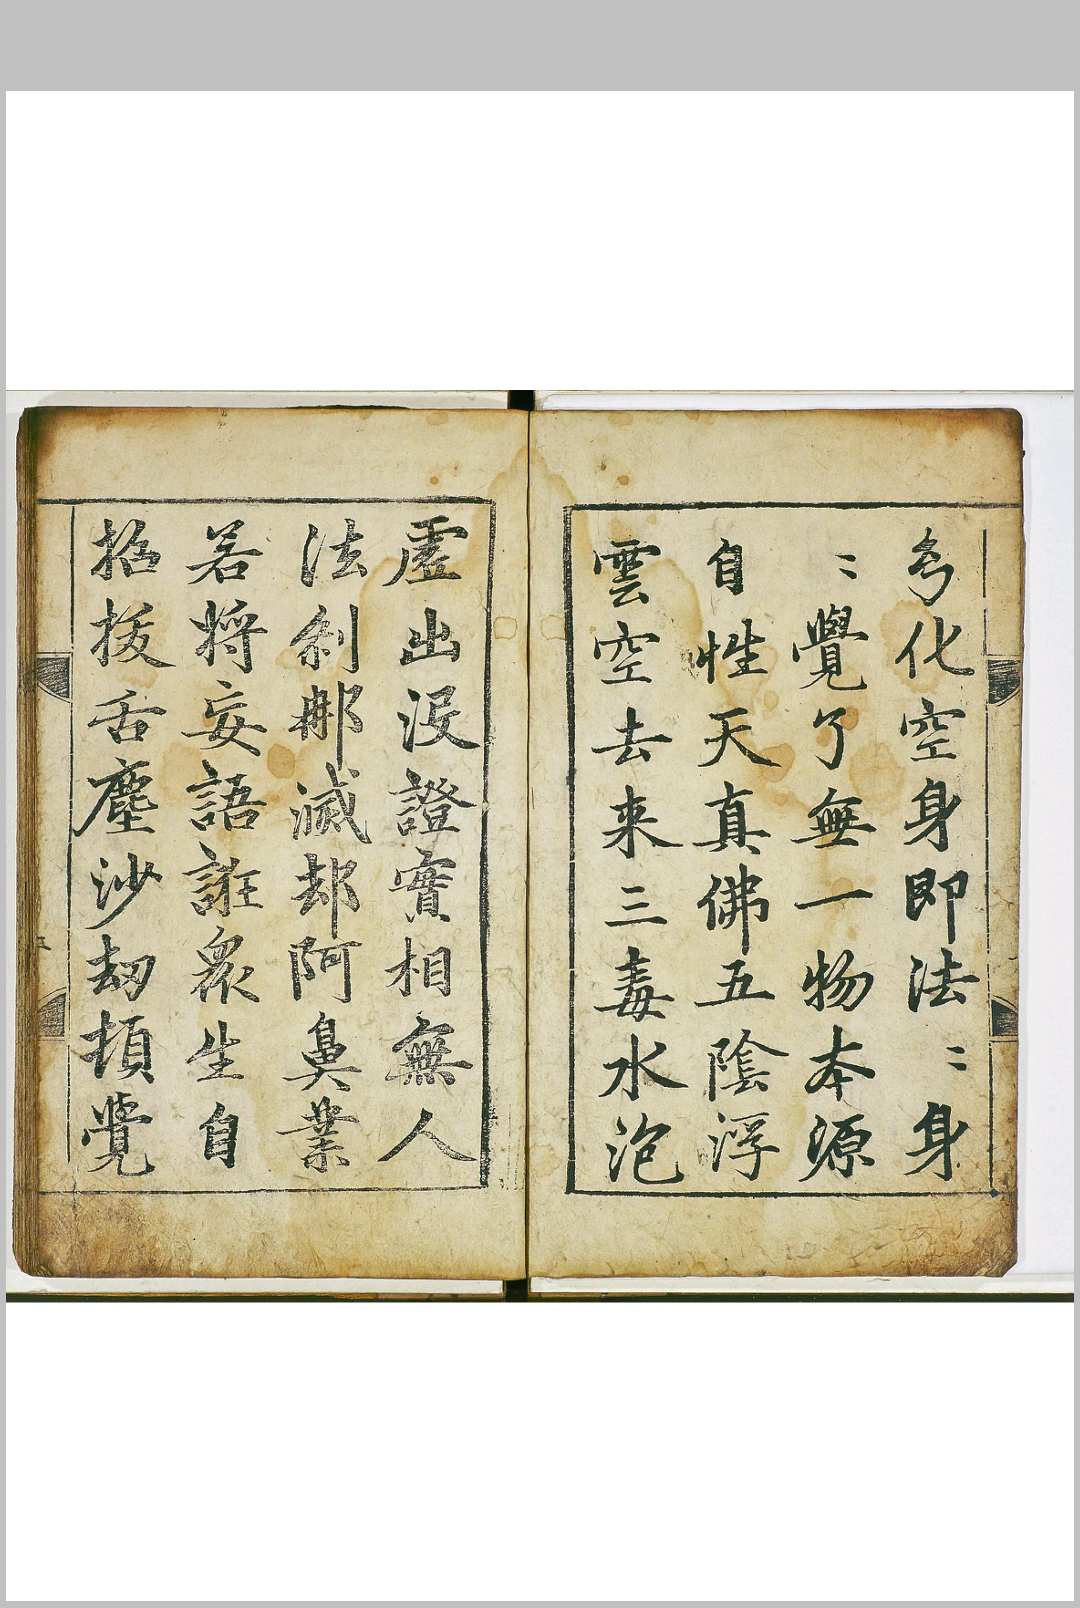 幻化空身即法〻身
〻覺了無一物本源
自性天真佛五陰浮
雲空去来三毒水泡
虛出沒證實相無人
法刹那滅却阿鼻業
若將妄語誑衆生自
招拔舌塵沙劫頓覺